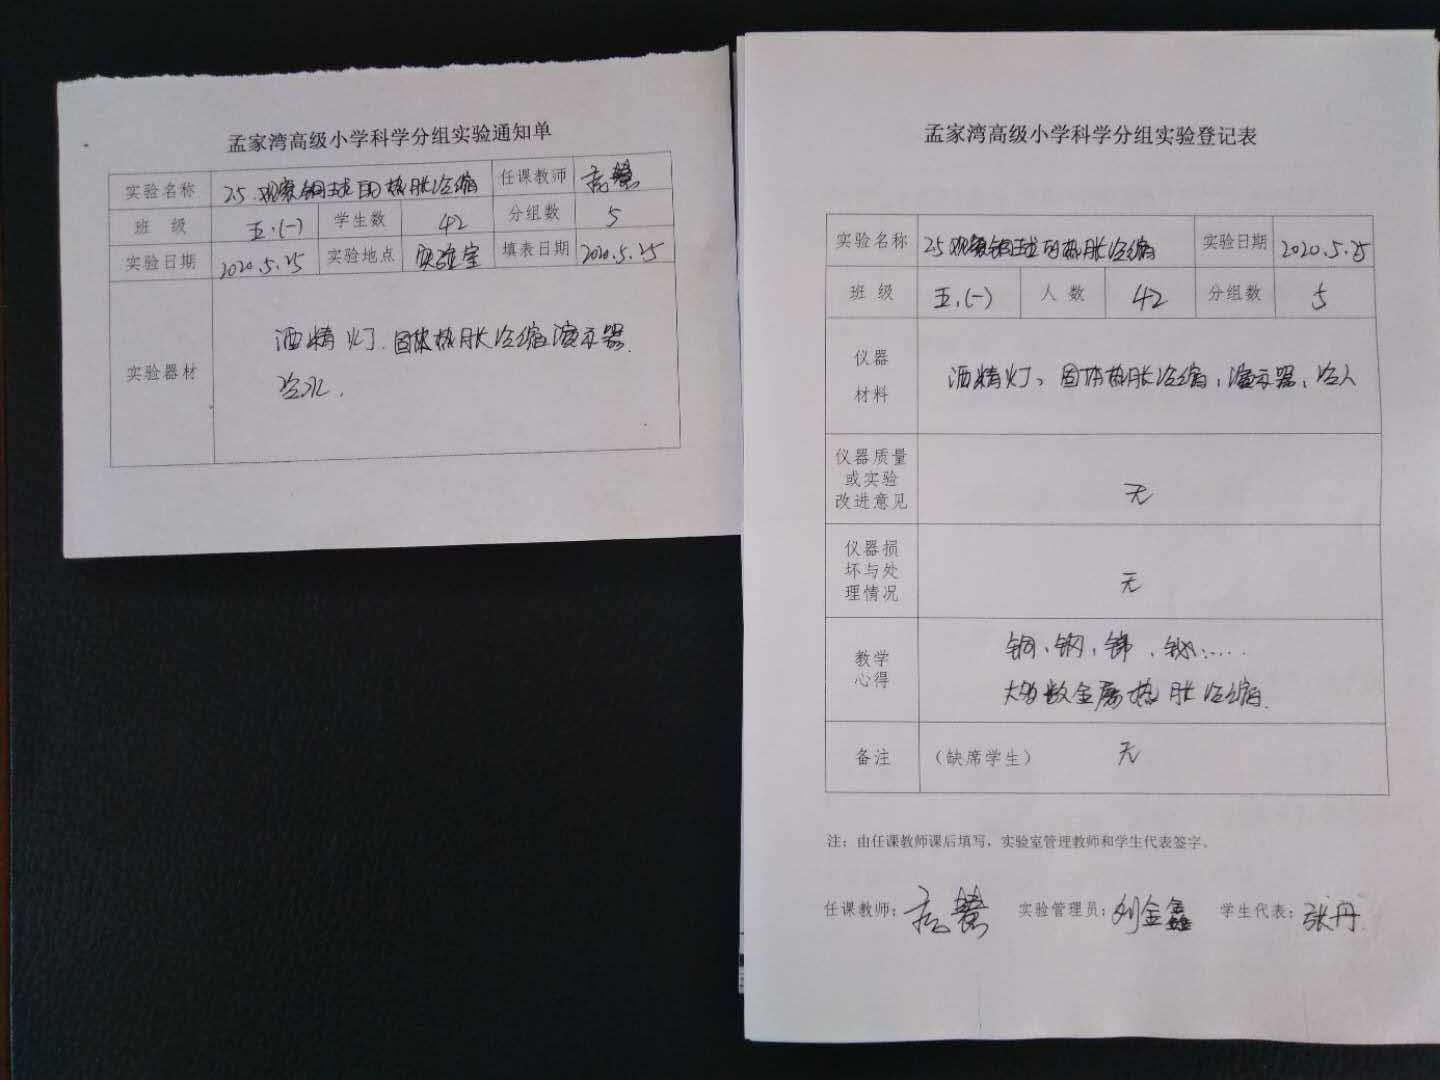 孟家湾高级小学科学分组实验通知单
实验名称 25.观察铜球的热胀冷缩 任课教师 高慧
班 级 五.(一) 学生数 42 分组数 5
实验日期 2020.5.25 实验地点 实验室 填表日期 2020.5.25
实验器材 酒精灯.固体热胀冷缩演示器.
冷水.
孟家湾高级小学科学分组实验登记表
实验名称 25观察铜球的热胀冷缩 实验日期 2020.5.25
班 级 五.(一) 人 数 42 分组数 5
仪器
材料
酒精灯、固体热胀冷缩,演示器,冷人
仪器质量
或实验
改进意见
无
仪器损
坏与处
理情况
无
教学
心得
铜,钢,锑
大多数金属热胀冷缩.
备注 (缺席学生) 无
注:由任课教师课后填写,实验室管理教师和学生代表签字。
任课教师: 高慧 实验管理员: 刘金鑫 学生代表: 张丹